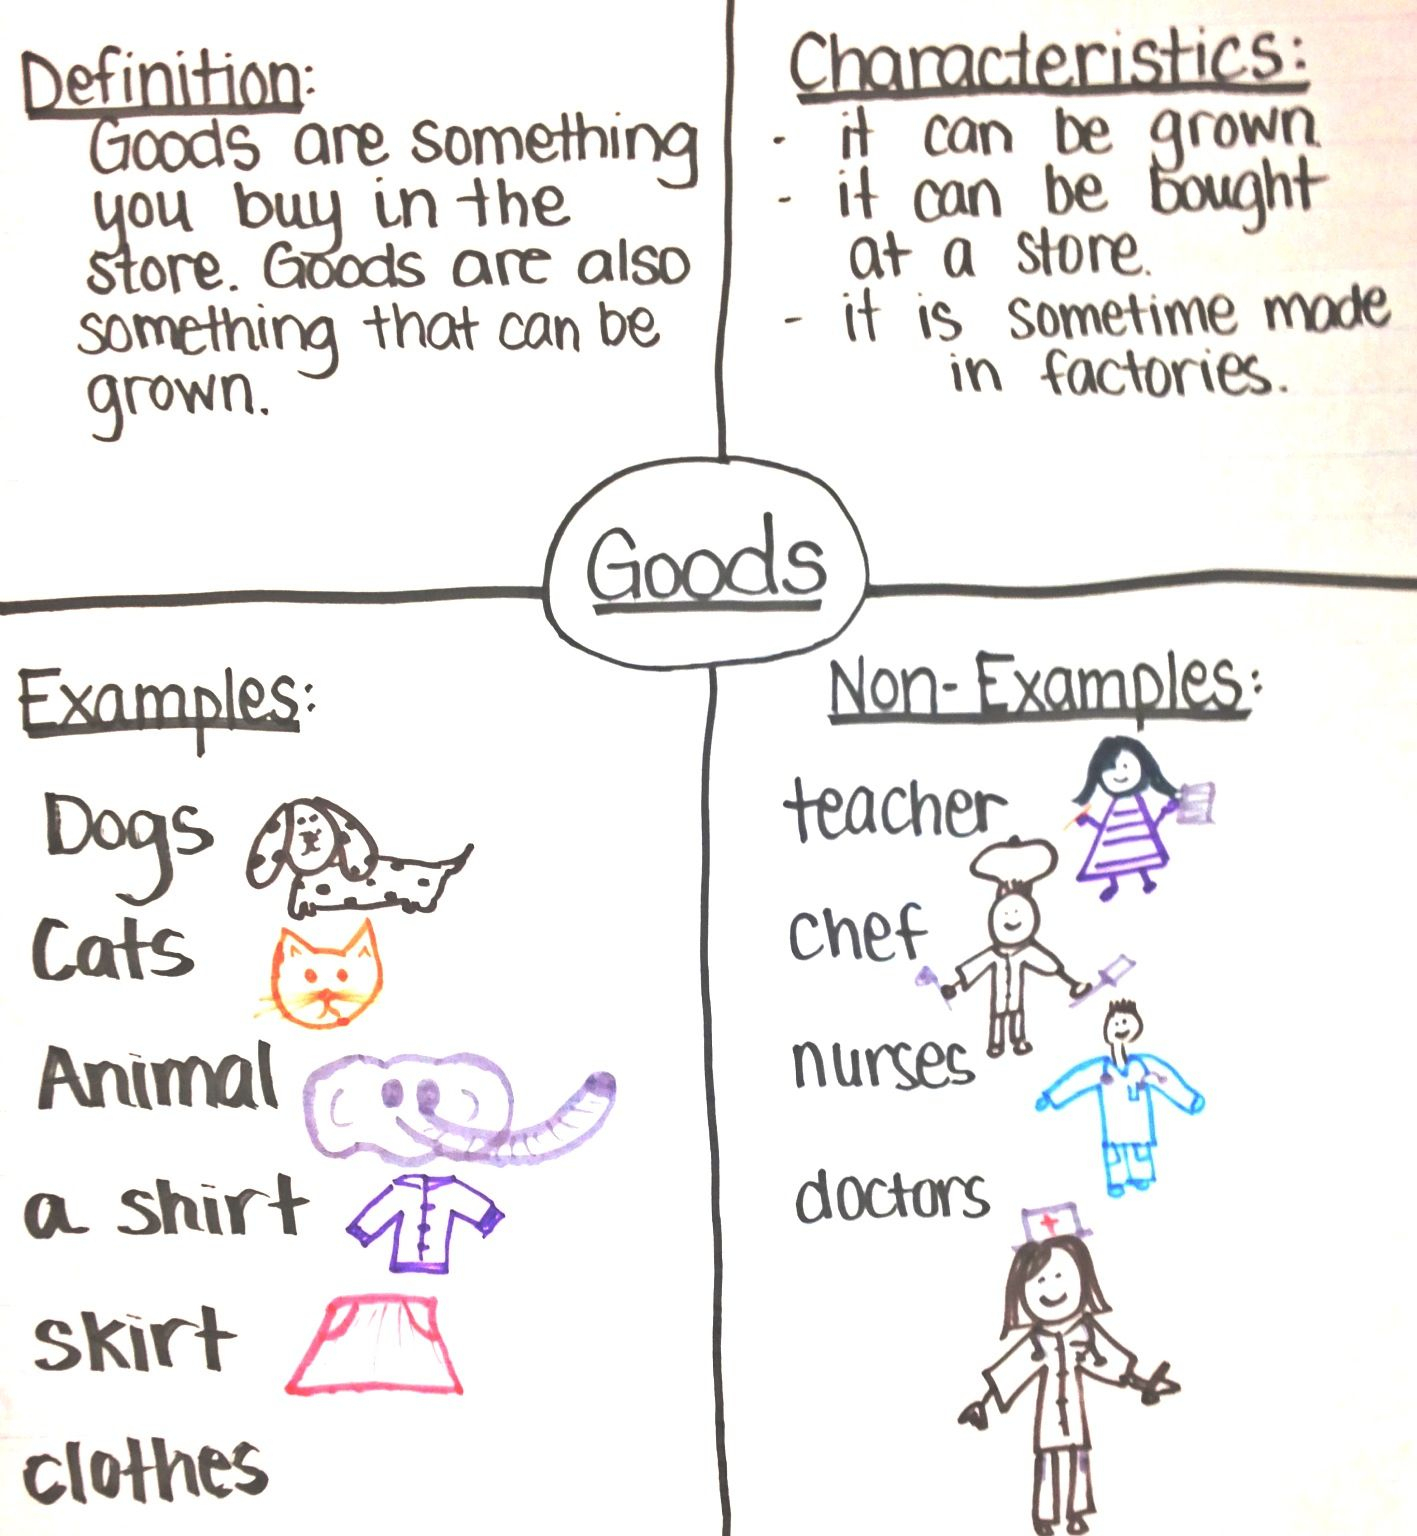 Definition:
Goods are something
you buy in the
store. Goods are also
something that can be
grown.
Characteristics:
- it can be grown.
- it can be bought
at a store.
- it is sometime made
in factories.
Goods
Examples:
Dogs
Cats
Animal
a shirt
skirt
clothes
Non-Examples:
teacher
chef
nurses
doctors